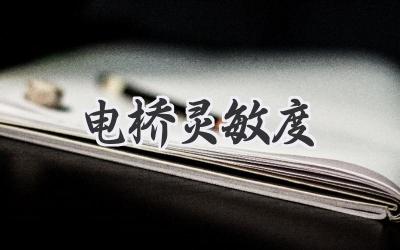 电桥灵敏度